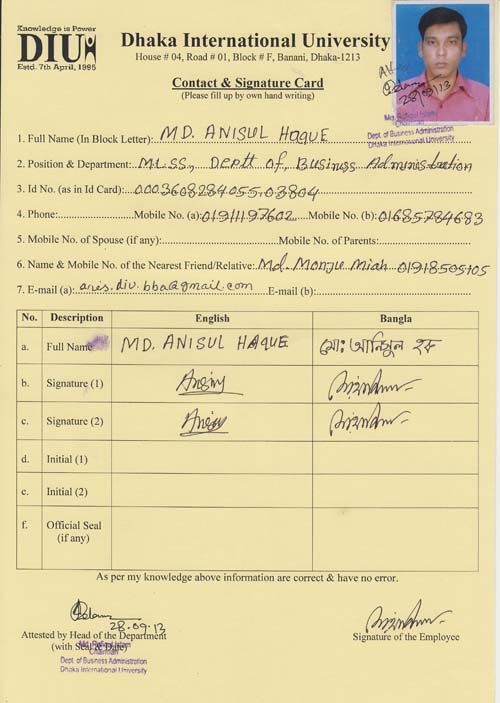 Knowledge is Power
DIU
Estd. 7th April, 1995
Dhaka International University
House # 04, Road # 01, Block # F, Banani, Dhaka-1213
Contact & Signature Card
(Please fill up by own hand writing)
28/09/13
Md. Rafiqul Islam
Chairman
Dept. of Business Administration
Dhaka International University
1. Full Name (In Block Letter): MD. ANISUL HAQUE
2. Position & Department: M.L.SS., Deptt of, Business Administration
3. Id No. (as in Id Card): 0003608284055,03804
4. Phone: Mobile No. (a): 01911197602 Mobile No. (b): 01685784683
5. Mobile No. of Spouse (if any): Mobile No. of Parents:
6. Name & Mobile No. of the Nearest Friend/Relative: Md. Monju Miah 01918505105
7. E-mail (a): anis.div.bba@gmail.com E-mail (b):
No. Description English Bangla
a. Full Name MD. ANISUL HAQUE মোঃ আনিসুল হক
b. Signature (1)
c. Signature (2)
d. Initial (1)
e. Initial (2)
f. Official Seal
(if any)
As per my knowledge above information are correct & have no error.
28.09.13
Attested by Head of the Department
(with Seal & Date)
Signature of the Employee
Md. Rafiqul Islam
Chairman
Dept. of Business Administration
Dhaka International University